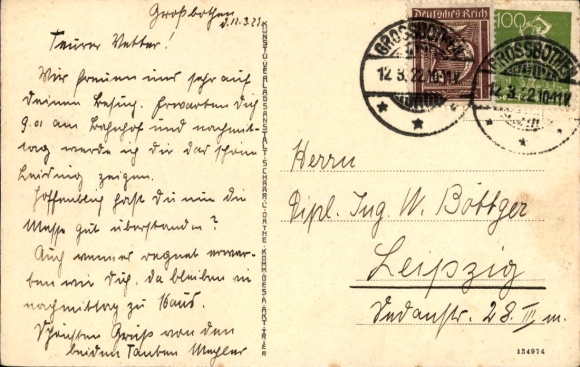 Großbothen
d. 11.3.22.
Teurer Vetter!
Wir freuen uns sehr auf
Deinen Besuch. Erwarten Dich
9.01 am Bahnhof und nachmit-
tag werde ich dir das schöne
Leisnig zeigen.
Hoffentlich hast du nun die
Messe gut überstanden?
Auch wenn es regnet erwar-
ten wir Dich, da bleiben wir
nachmittag zu Haus.
Schönsten Gruß von den
beiden Tanten
KUNSTVERLAGSANSTALT SCHAAR & DATHE, KOMM.-GES. A. AKT. TRIER
Deutsches Reich
100
GROSSBOTHEN
12.3.22.10-11V.
GROSSBOTHEN
12.3.22.10-11V.
Herrn
Dipl. Ing. W. Böttger
Leipzig
Sedanstr. 28. III m.
154974